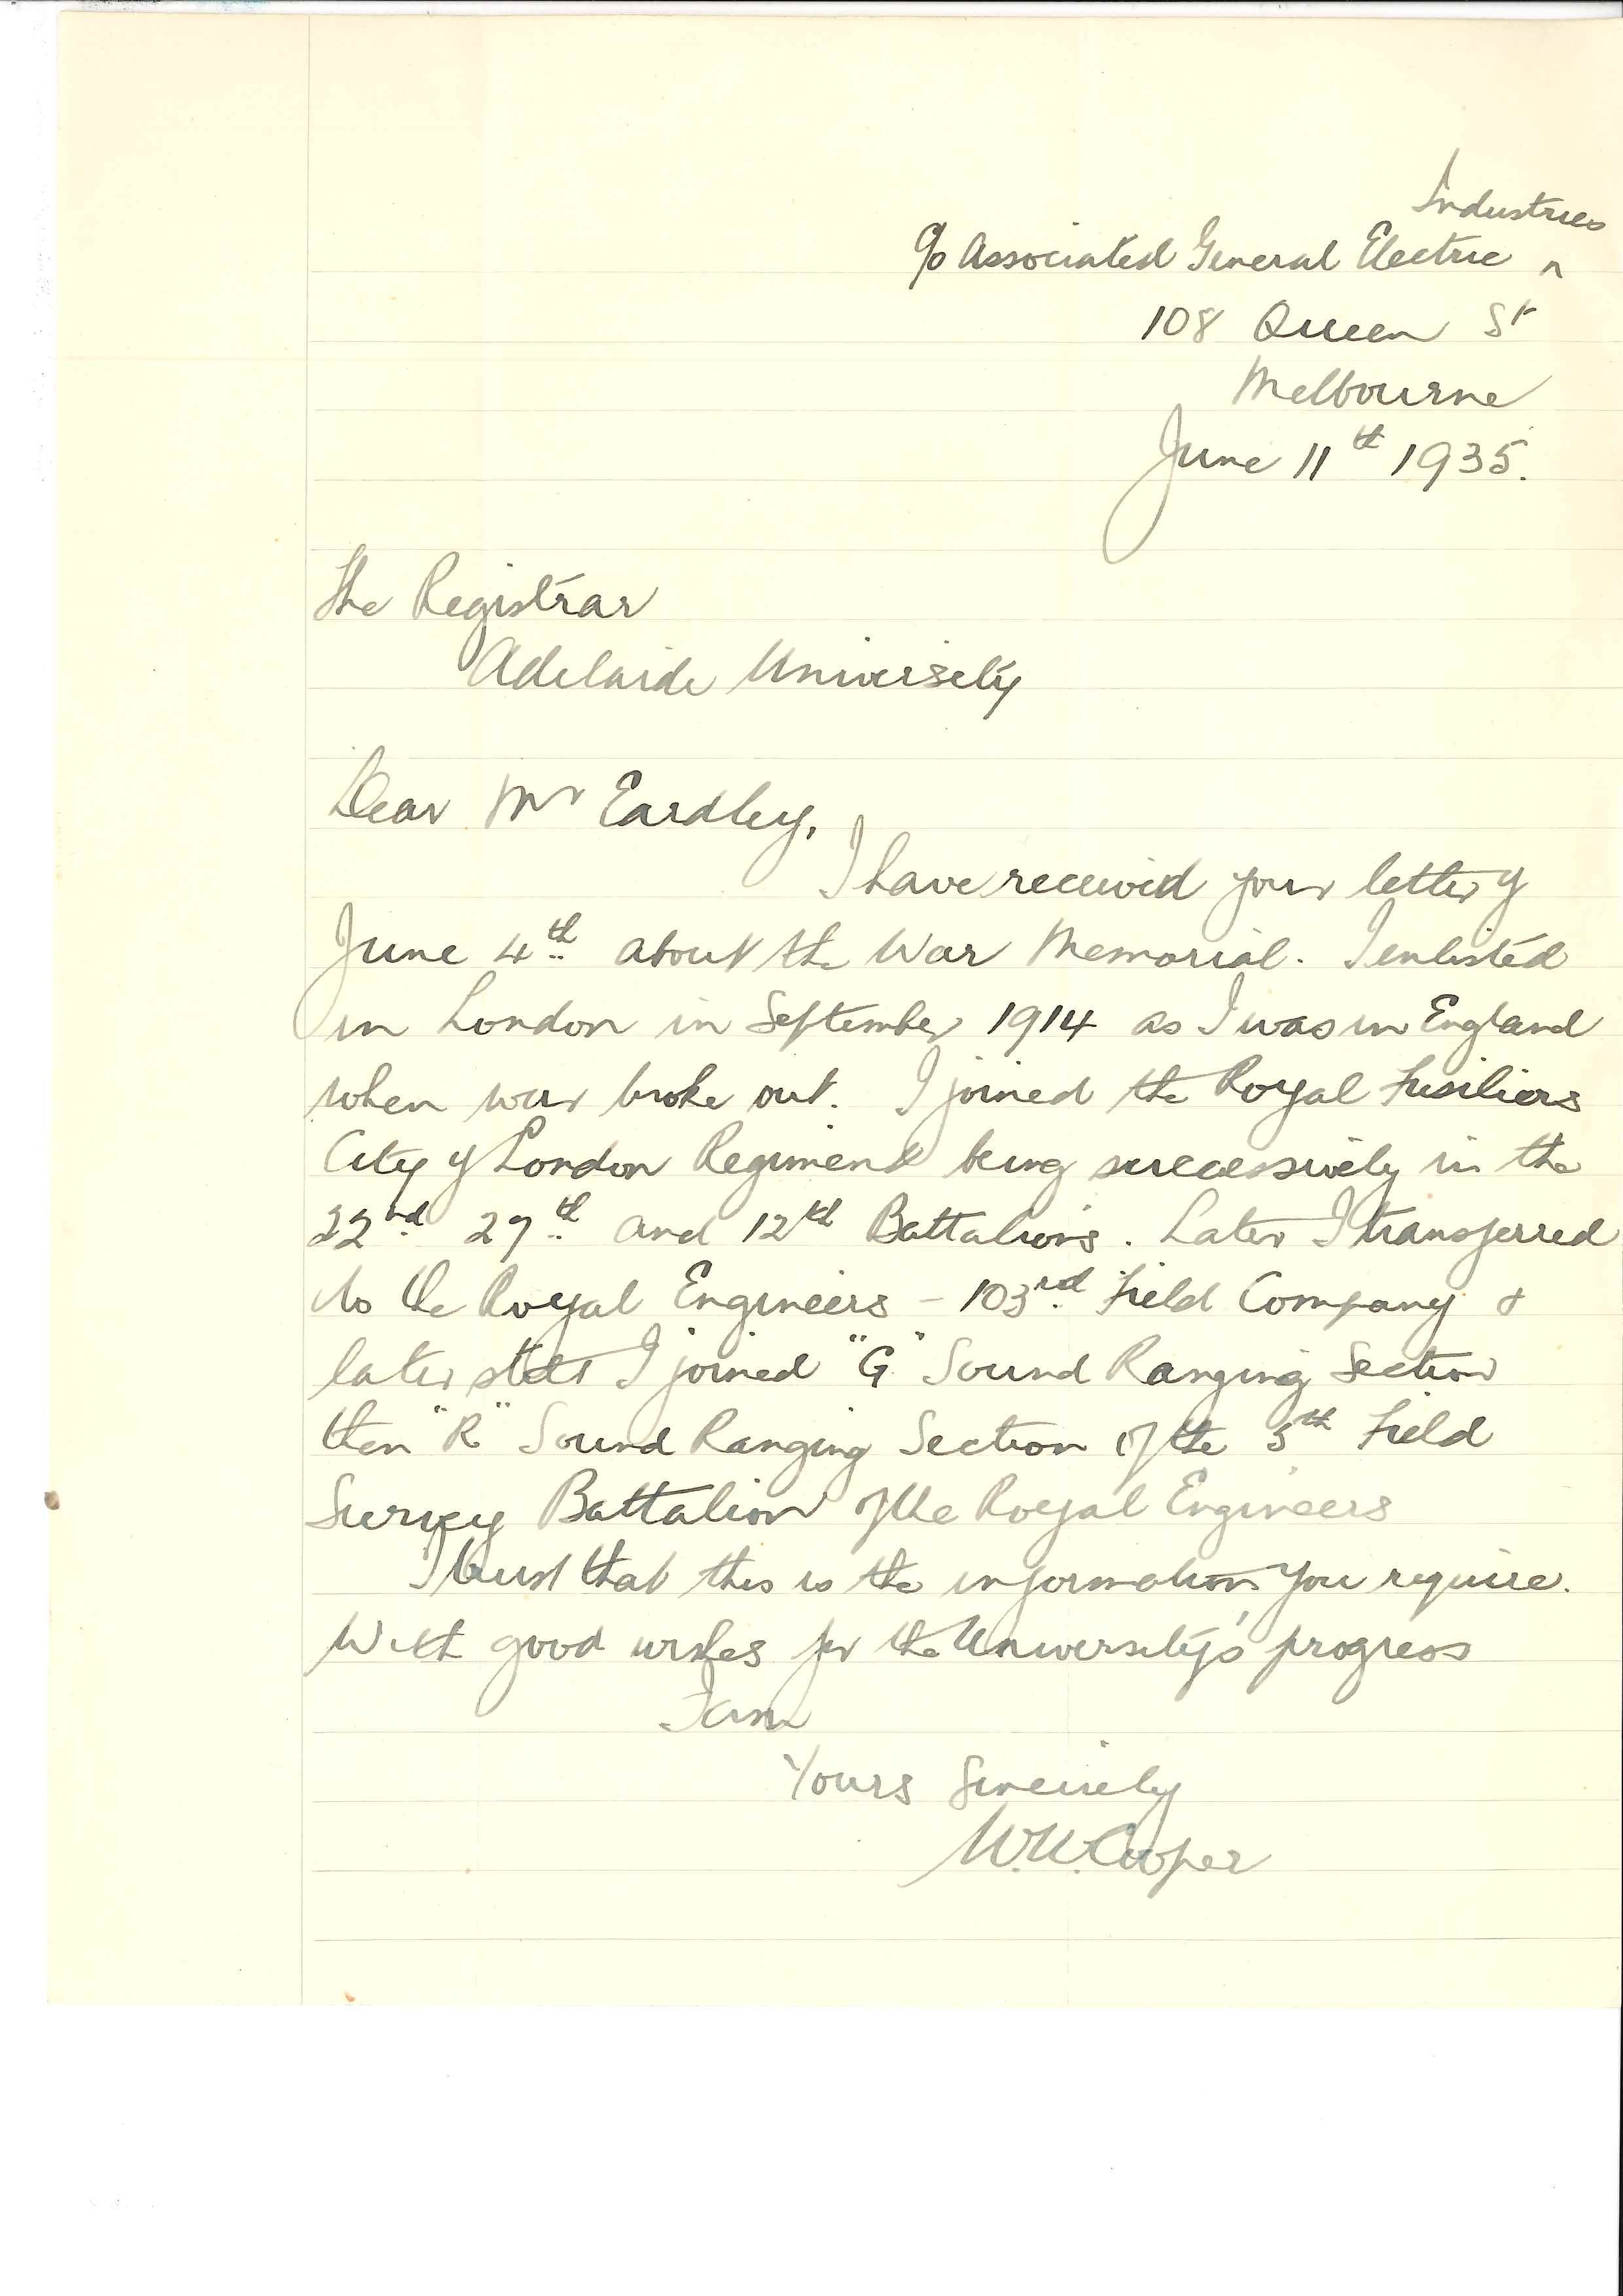 Industries
c/o Associated General Electric ^
108 Queen St
Melbourne
June 11th 1935.
The Registrar
Adelaide University
Dear Mr Eardley,
I have received your letter of
June 4th about the War Memorial. I enlisted
in London in September 1914 as I was in England
when war broke out. I joined the Royal Fusiliers
City of London Regiment being successively in the
22nd 27th and 12th Battalions. Later I transferred
to the Royal Engineers - 103rd Field Company &
later I joined "G" Sound Ranging Section
then "R" Sound Ranging Section of the 5th Field
Survey Battalion of the Royal Engineers
I trust that this is the information you require.
With good wishes for the University's progress
I am
Yours Sincerely
W.W. Cooper